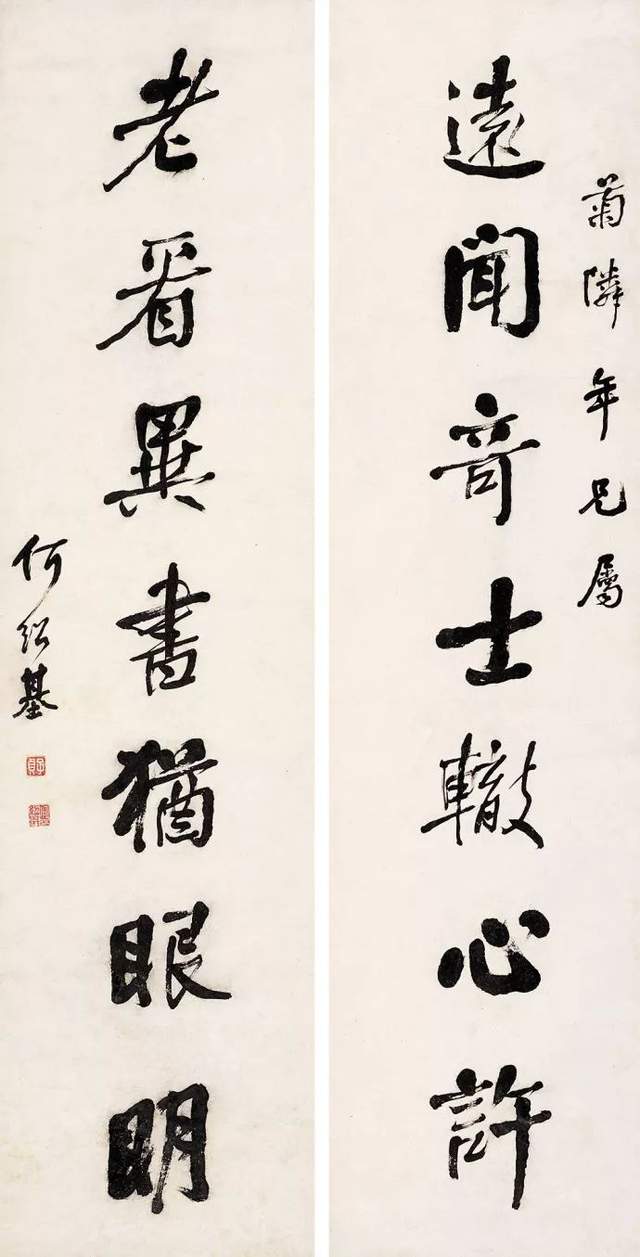 菊隣年兄屬
遠聞奇士轍心許
老看異書猶眼明
何紹基